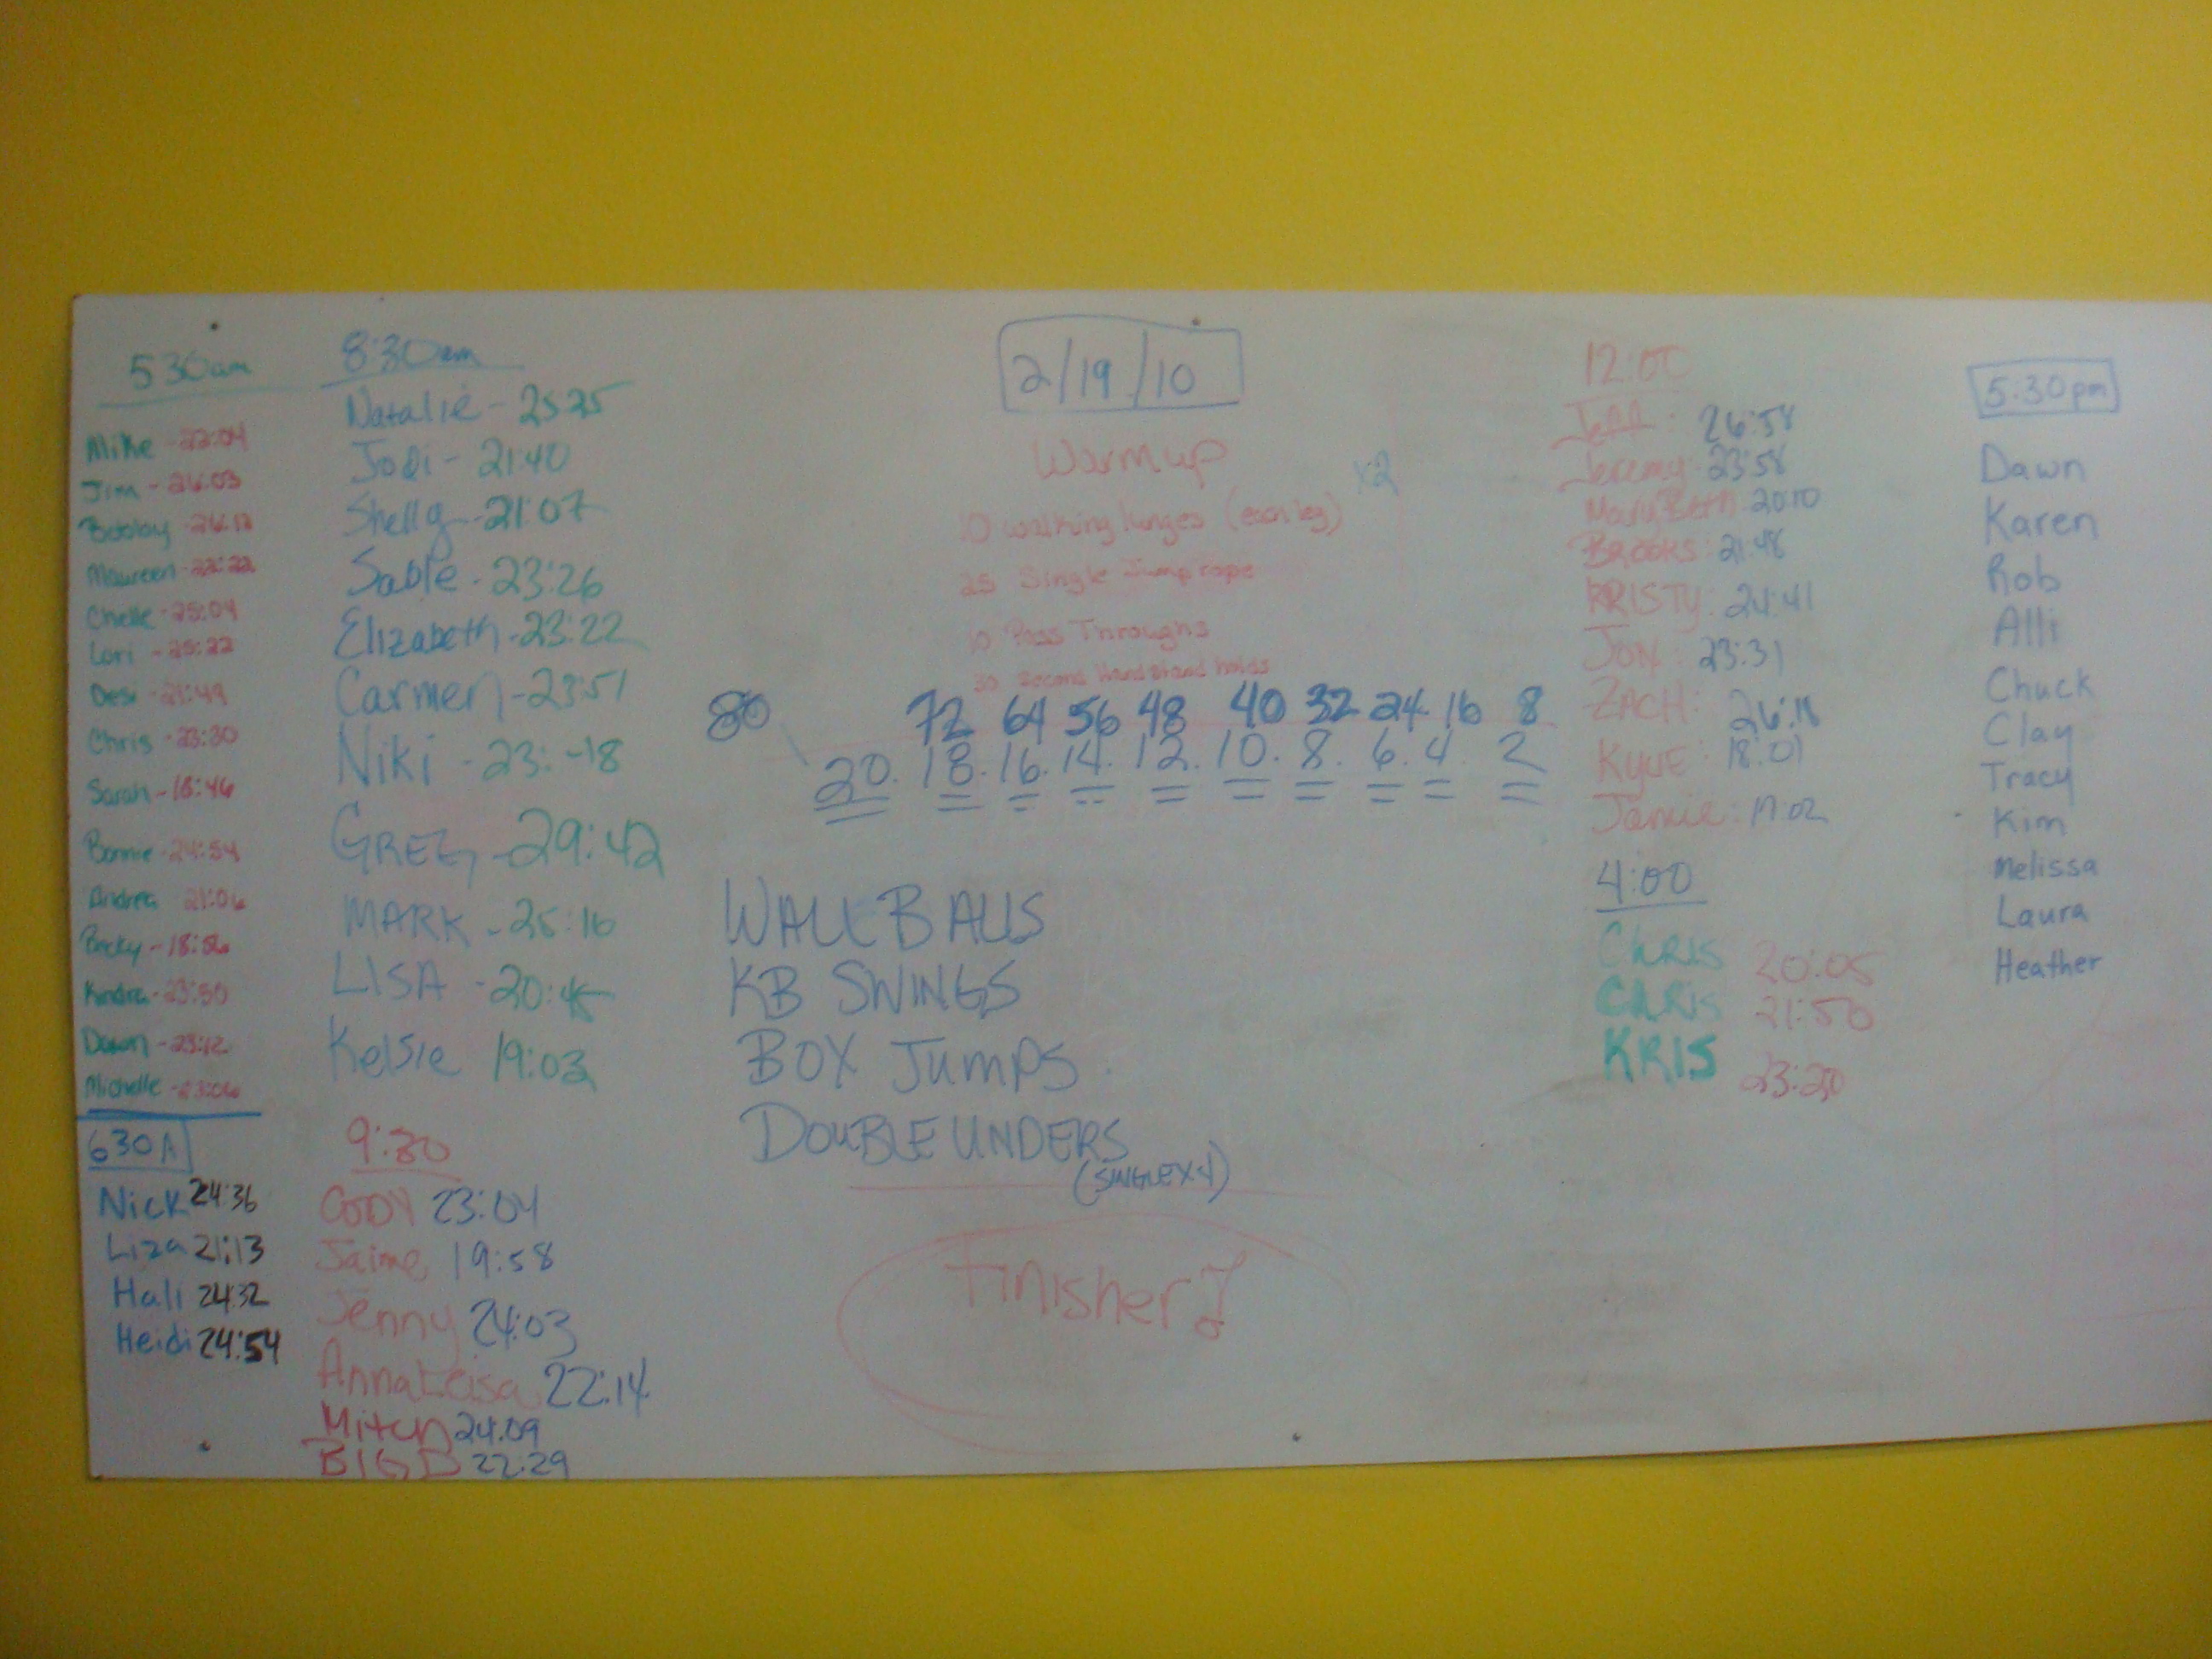 530am
Mike - 22:04
Jim - 26:03
Bobby - 26:12
Maureen - 22:22
Chelle - 25:04
Lori - 25:22
Desi - 21:49
Chris - 23:30
Sarah - 18:46
Bonnie - 24:54
Andrea 21:06
Becky - 18:56
Kindra - 23:50
Dawn - 23:12
Michelle - 23:06
630A
Nick 24:36
Liza 21:13
Hali 24:32
Heidi 24:54
8:30am
Natalie - 25:25
Jodi - 21:40
Shelly - 21:07
Sable - 23:26
Elizabeth - 23:22
Carmen - 23:51
Niki - 23:-18
GREG - 29:42
MARK - 25:16
LISA - 20:45
Kelsie 19:03
9:30
CODY 23:04
Jaime 19:58
Jenny 24:03
AnnaLeisa 22:14
Mitch 24:09
BIG D 22:29
2/19/10
Warm up
x2
10 walking lunges (each leg)
25 Single Jump rope
10 Pass Throughs
30 second Handstand holds
80 72 64 56 48 40 32 24 16 8
20. 18. 16. 14. 12. 10. 8. 6. 4. 2
WALL BALLS
KB SWINGS
BOX JUMPS
DOUBLE UNDERS
(SINGLE X 4)
Finisher
12:00
Jeff: 26:58
Jeremy: 23:58
MaryBeth 20:10
BROOKS: 21:48
KRISTY: 24:41
JON: 23:31
ZACH: 26:18
KYLIE: 18:01
Jamie: 17:02
4:00
CHRIS 20:05
CHRIS 21:50
KRIS 23:20
5:30pm
Dawn
Karen
Rob
Alli
Chuck
Clay
Tracy
Kim
Melissa
Laura
Heather